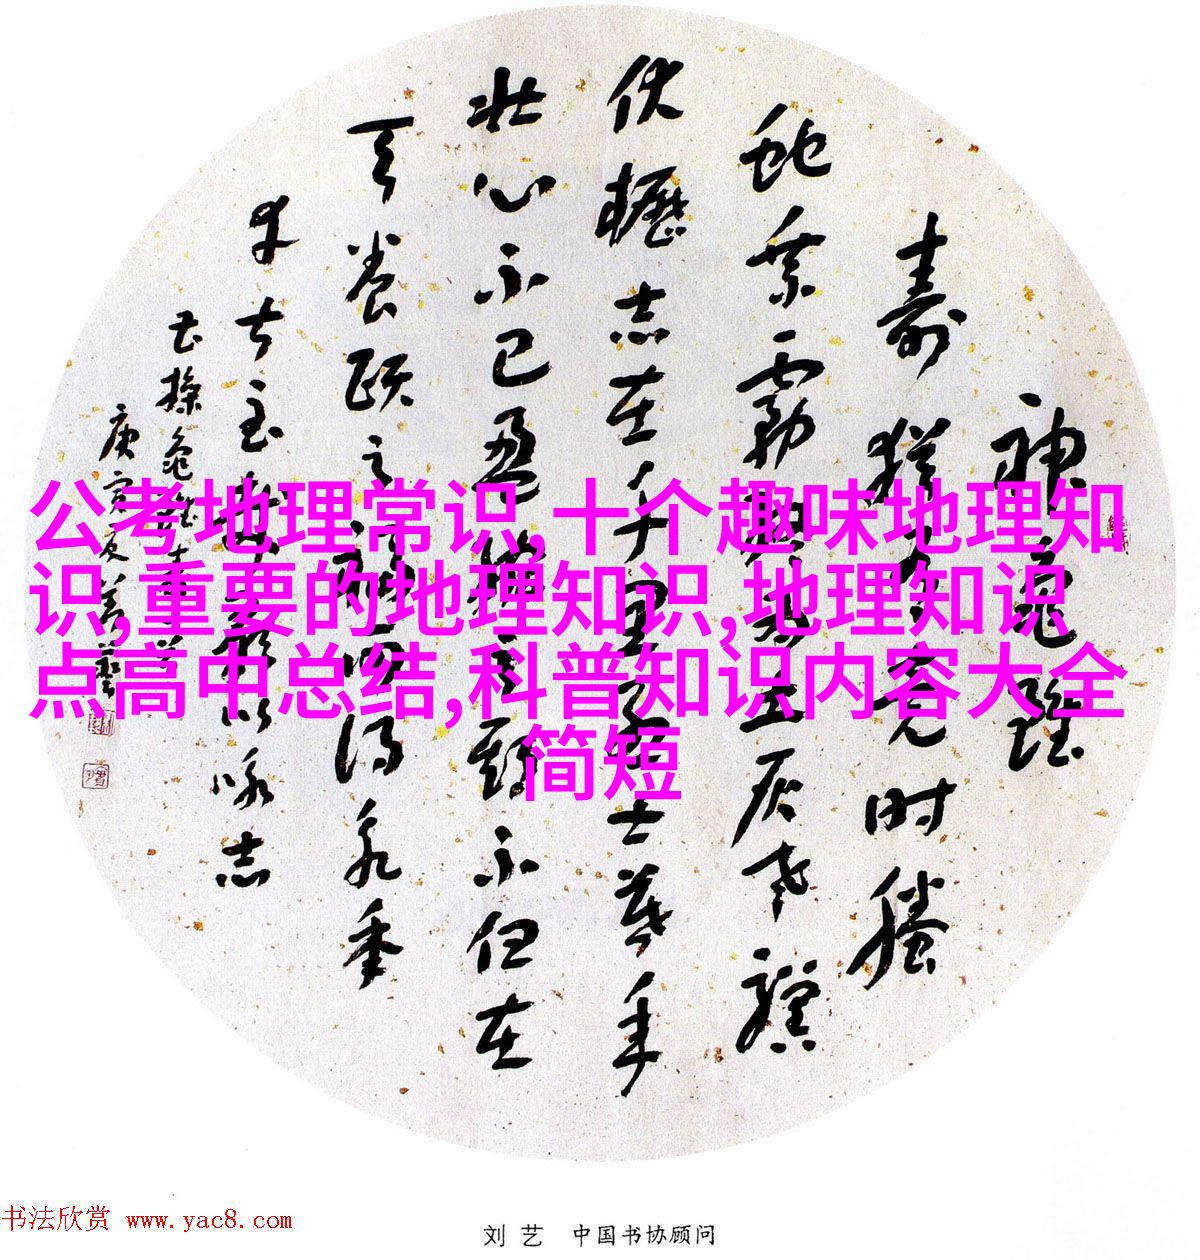 神龜雖
壽猶有竟时騰
蛇乘霧終為土灰老驥
伏櫪志在千里烈士暮年
壮心不已盈縮之期不但在
天養頤之福可得永年
幸甚至哉歌以咏志
曹操龜雖壽
庚寅夏劉藝
公考地理常识,十个趣味地理知
识,重要的地理知识,地理知识
点高中总结,科普知识内容大全
简短
书法欣赏 www.yac8.com
刘艺 中国书协顾问